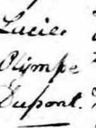 Lucie
Olympe
Dupont.